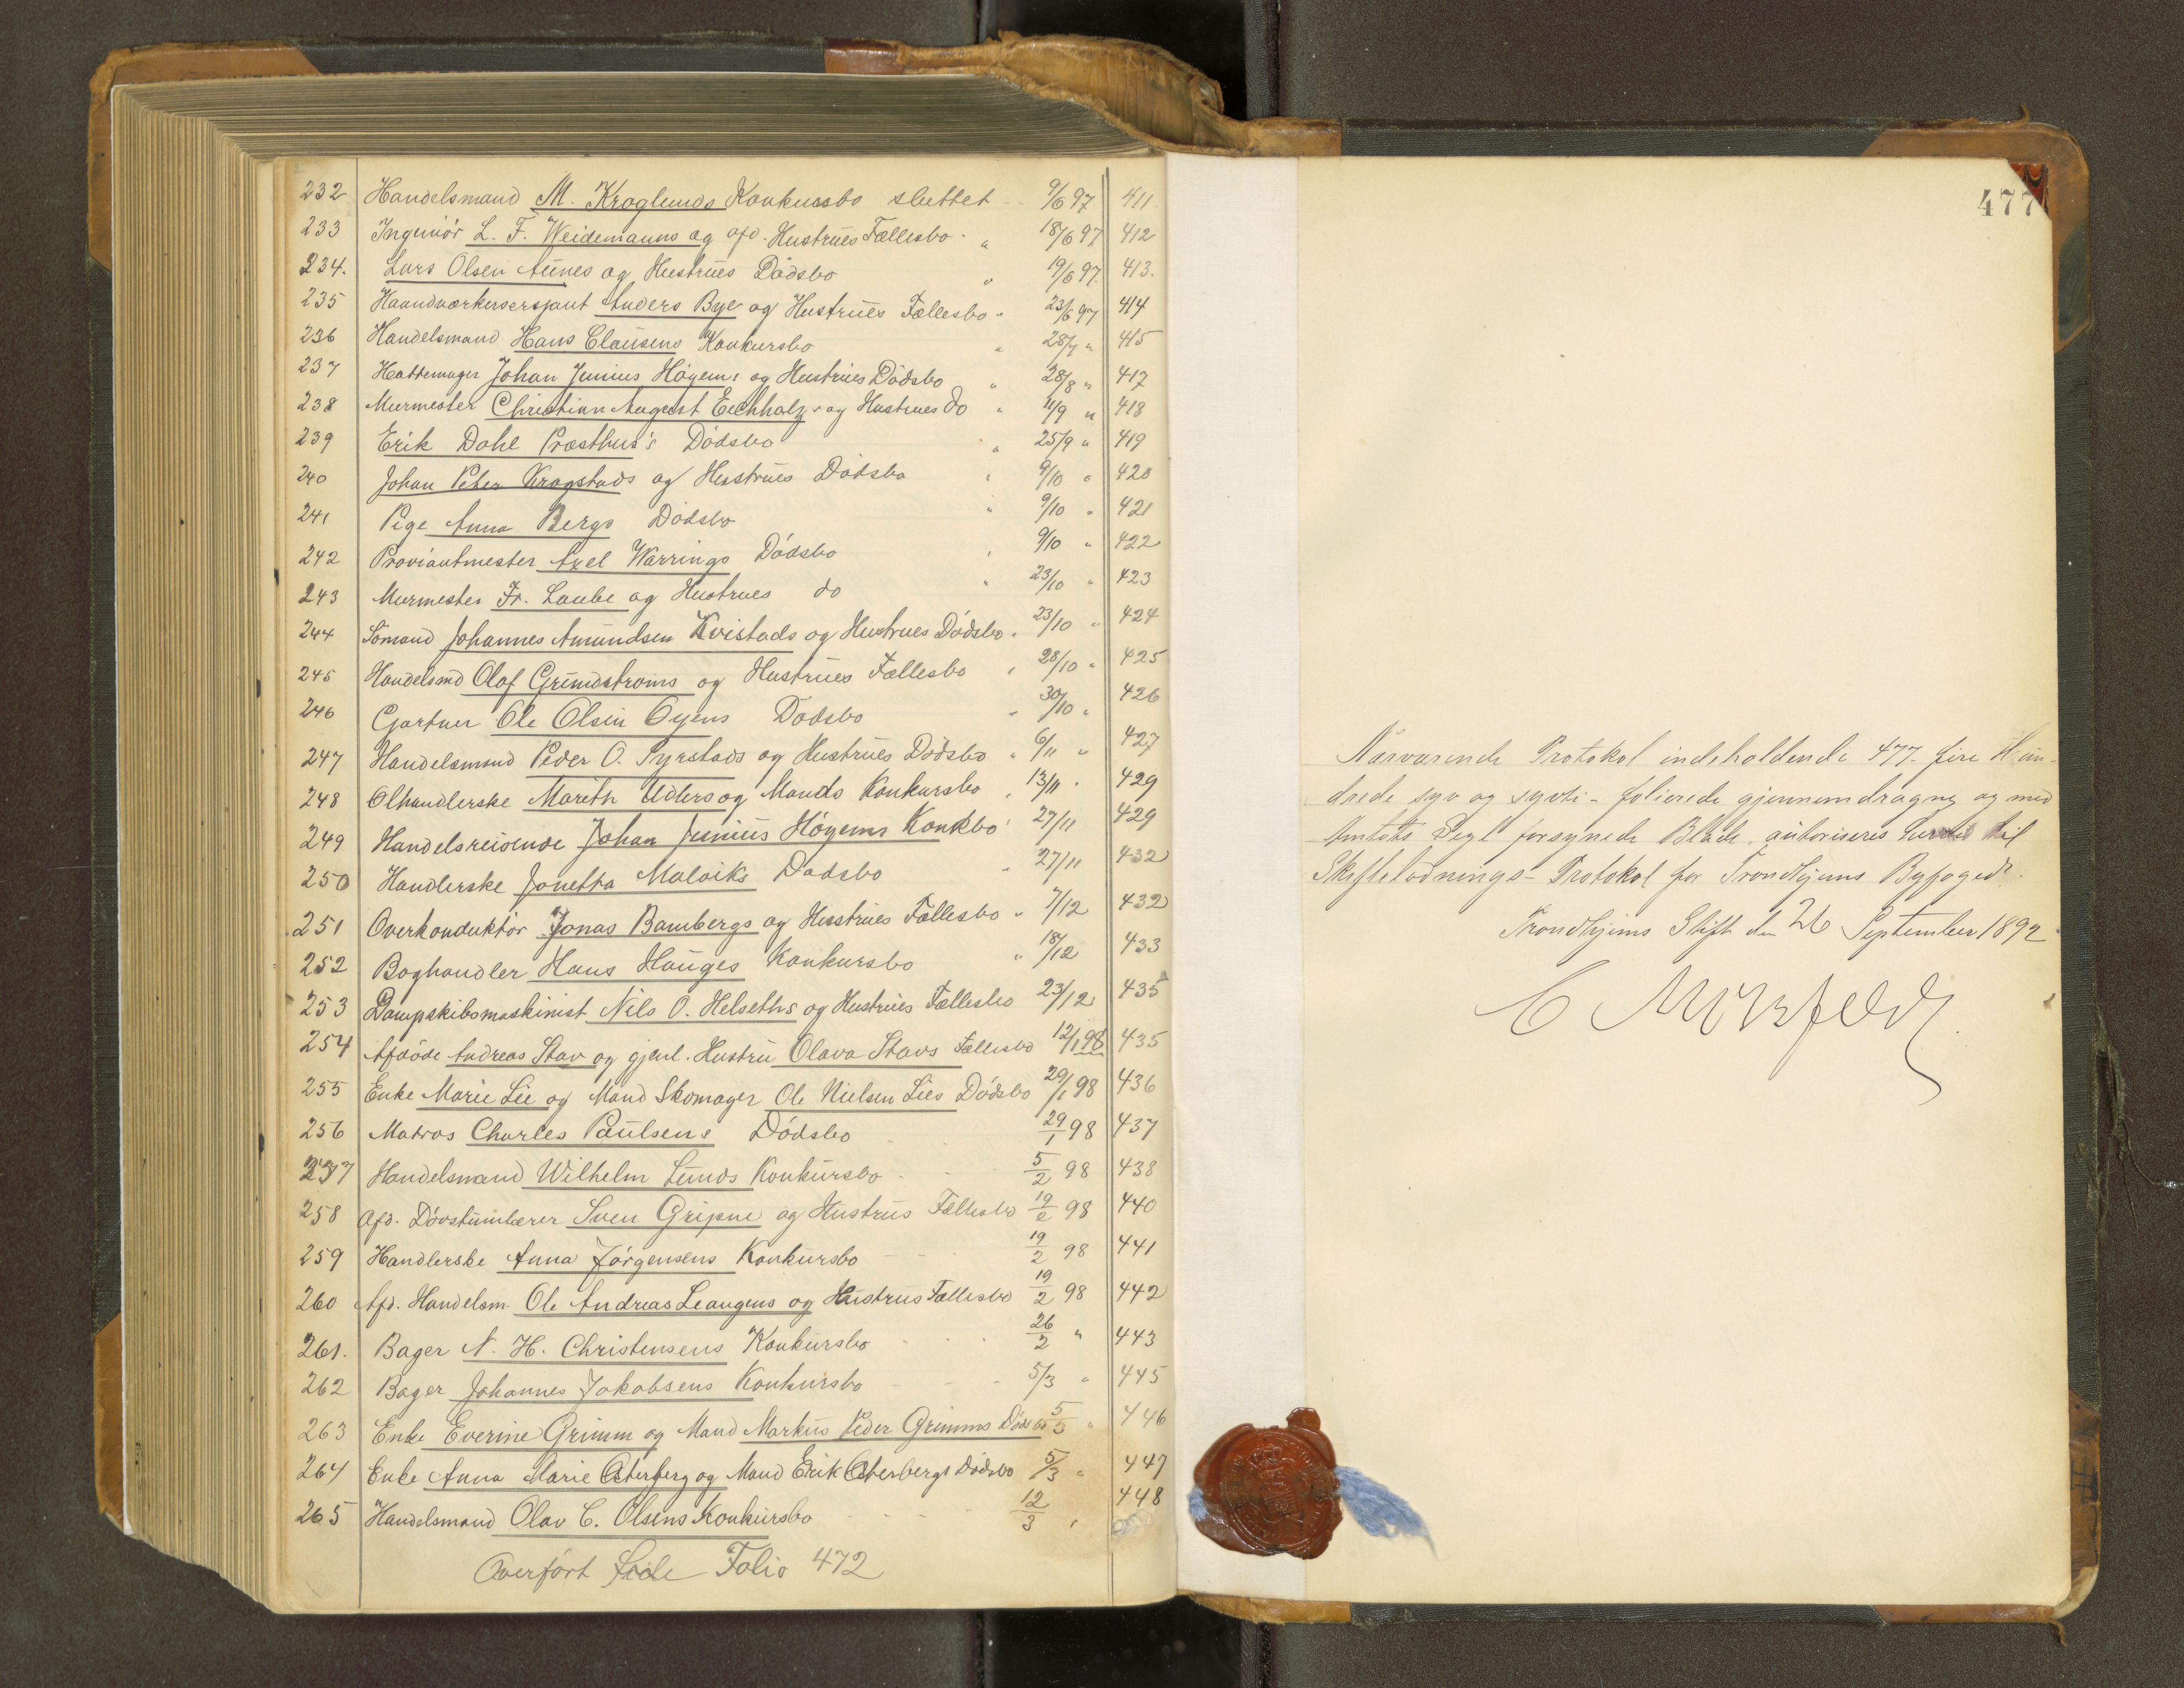 232 Handelsmand M. Kroglunds Konkursbo sluttet - - 9/6 97 411.
233 Ingeniør L. F. Weidemanns og afd. Hustrues Fællesbo - " 18/6 97 412
234. Lars Olsen Aunes og Hustrues Dødsbo " 19/6 97. 413.
235 Haandværkersersjant Anders Bye og Hustrues Fællesbo " 23/6 97 414
236 Handelsmand Hans Clausens Konkursbo " 28/7 " 415
237 Hattemager Johan Junius Höyems og Hustrues Dödsbo " 28/8 " 417
238 Murmester Christian August Eichholz's og Hustrues do " 11/9 " 418
239 Erik Dahl Præsthus's Dödsbo " 25/9 " 419
240 Johan Peter Krogstads og Hustrues Dödsbo " 9/10 " 420
241 Pige Anna Bergs Dödsbo " 9/10 " 421
242 Proviantmester Axel Warrings Dödsbo " 9/10 " 422
243 Murmester Fr. Laube og Hustrues do " 23/10 " 423
244 Sömand Johannes Amundsen Kvistads og Hustrues Dödsbo " 23/10 " 424
245 Handelsmd Olaf Grundstroms og Hustrues Fællesbo " 28/10 " 425
246 Gartner Ole Olsen Öyens Dödsbo " 30/10 " 426
247 Handelsmand Peder O. Pyrstads og Hustrues Dödsbo " 6/11 " 427
248 Ölhandlerske Marith Udlers og Mands Konkursbo " 13/11 " 429
249 Handelsreisende Johan Junius Höyems Konkbo " 27/11 429
250 Handlerske Jonetta Malviks Dødsbo " 27/11 432
251 Overkonduktör Jonas Bambergs og Hustrues Fællesbo " 7/12 432
252 Boghandler Hans Hauges Konkursbo " 18/12 433
253 Dampskibsmaskinist Nils O. Helseths og Hustrues Fællesbo 23/12 435
254 Afdöde Andreas Stav og gjenl. Hustru Olava Stavs Fællesbo 12/1 98 435
255 Enke Marie Lie og Mand Skomager Ole Nielsen Lies Dödsbo 29/1 98 436
256 Matros Charles Paulsens Dödsbo - - 29/1 98 437
257 Handelsmand Wilhelm Lunds Konkursbo - - - 5/2 98 438
258 Afd. Døvstumlærer Sven Gripne og Hustrus Fællesbo 19/2 98 440
259 Handlerske Anna Jörgensens Konkursbo - - 19/2 98 441
260 Afd. Handelsm. Ole Andreas Leangens og Hustrus Fællesbo 19/2 98 442
261. Bager N. H. Christensens Konkursbo - - - 26/2 " 443
262 Bager Johannes Jakobsens Konkursbo - - - 5/3 " 445
263 Enke Everine Grimm og Mand Markus Peder Grimms Dödsbo 5/3 " 446
264 Enke Anna Marie Osterberg og Mand Erik Osterbergs Dödsbo 5/3 " 447
265 Handelsmand Olav C. Olsens Konkursbo - - - 12/3 " 448
Overført Side Folio 472
477
Nærværende Protokol indeholdende 477 - fire Hun-
drede syv og syvti - folierede gjennemdragne og med
Amtets Segl forsynede Blade, autoriseres herved til
Skifteudlodnings-Protokol for Trondhjems Byfoged.
Trondhjems Stift den 26 September 1892
C Motzfeldt